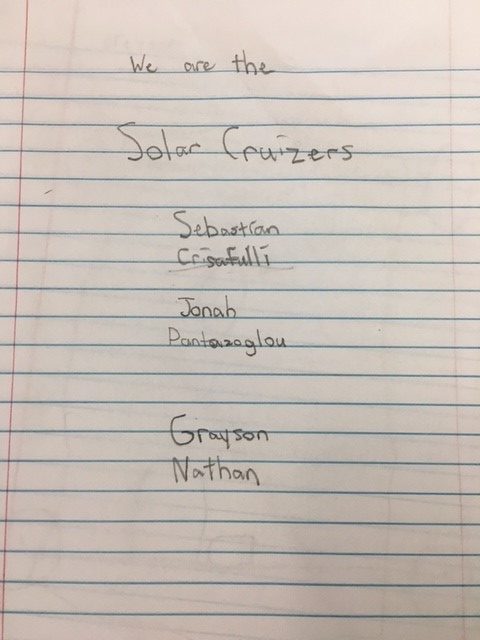 We are the
Solar Cruizers
Sebastian
Crisafulli
Jonah
Pantazoglou
Grayson
Nathan